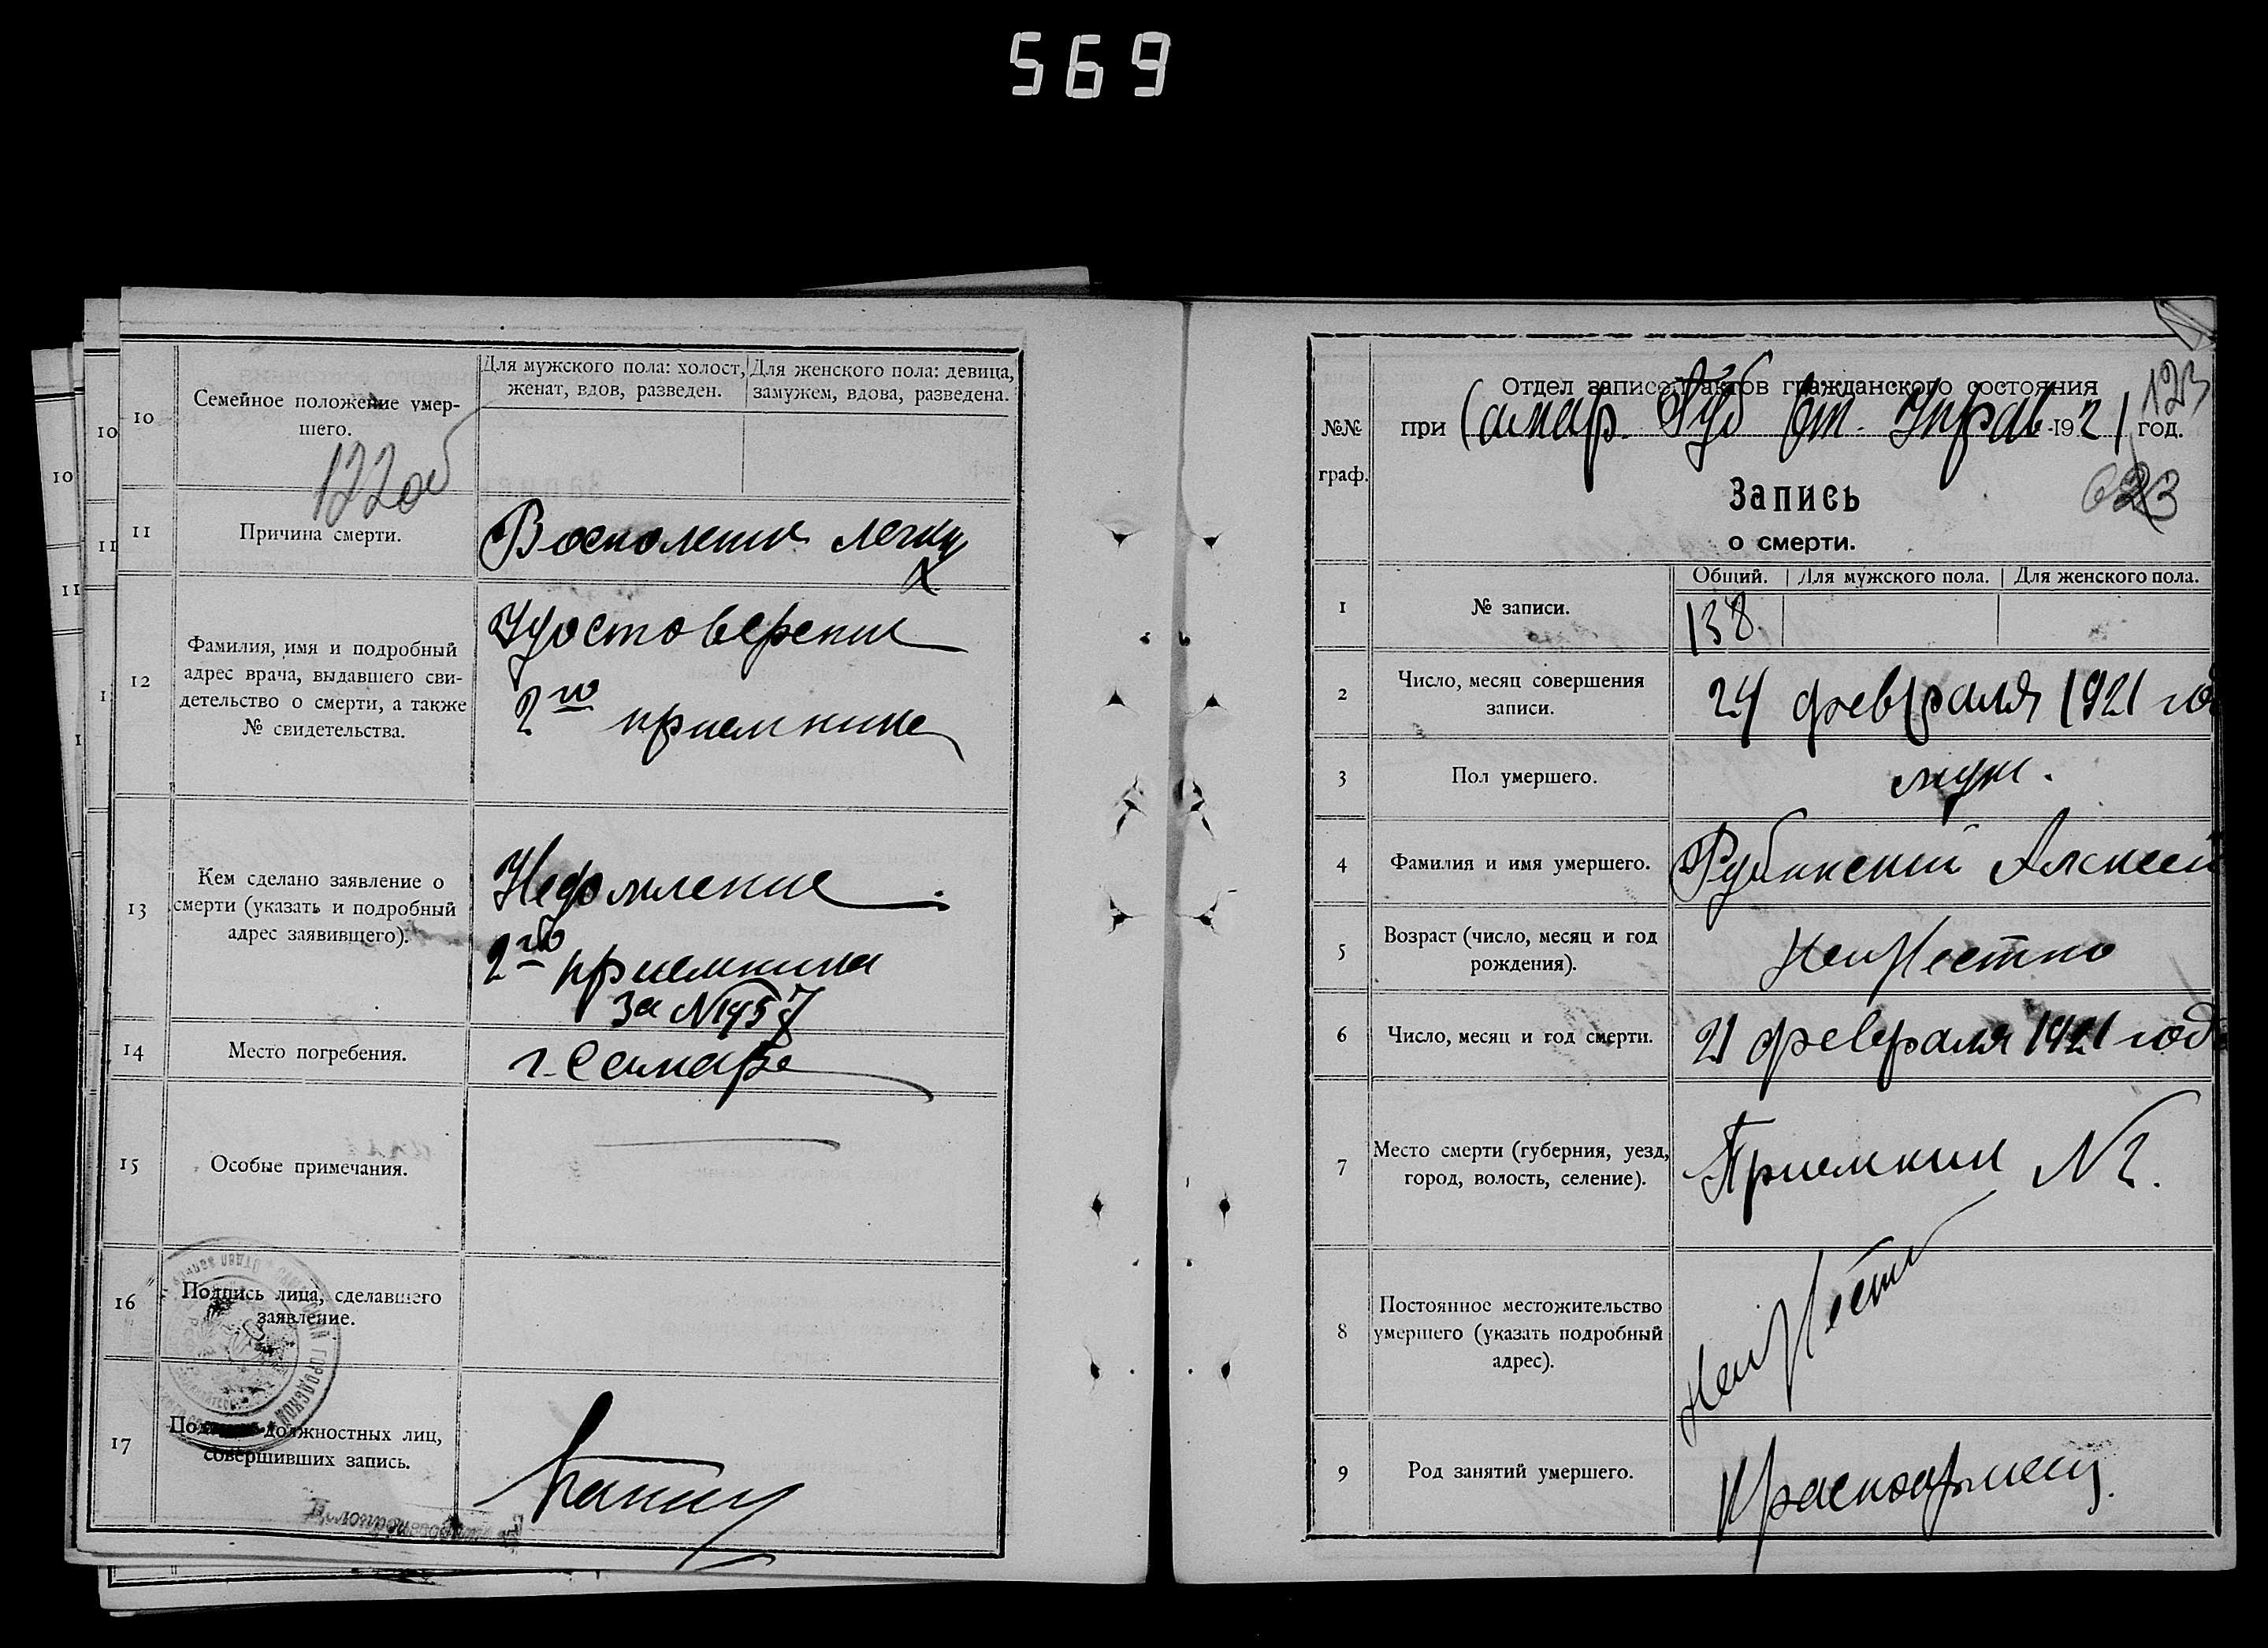 569
10
Семейное положение умер-
шего.
Для мужского пола: холост,
женат, вдов, разведен.
Для женского пола: девица,
замужем, вдова, разведена.
122об
11
Причина смерти.
Воспаление легких
12
Фамилия, имя и подробный
адрес врача, выдавшего сви-
детельство о смерти, а также
№ свидетельства.
Удостоверение
2го приемника
13
Кем сделано заявление о
смерти (указать и подробный
адрес заявившего).
2го приемника
за № 1957
14
Место погребения.
г. Самара
15
Особые примечания.
16
Подпись лица, сделавшего
заявление.
17
должностных лиц,
совершивших запись.
№№
граф.
Отдел записей актов гражданского состояния
123
при Самар. Губ От. Управ 1921 год.
Запись
о смерти.
Общий. Для мужского пола. Для женского пола.
1
№ записи.
138
2
Число, месяц совершения
записи.
24 февраля 1921 год
3
Пол умершего.
муж.
4
Фамилия и имя умершего.
Рубинский Алексей
5
Возраст (число, месяц и год
рождения).
Неизвестно
6
Число, месяц и год смерти.
21 февраля 1921 год
7
Место смерти (губерния, уезд,
город, волость, селение).
Приемник № 2.
8
Постоянное местожительство
умершего (указать подробный
адрес).
Неизвестно
9
Род занятий умершего.
Красноармеец.